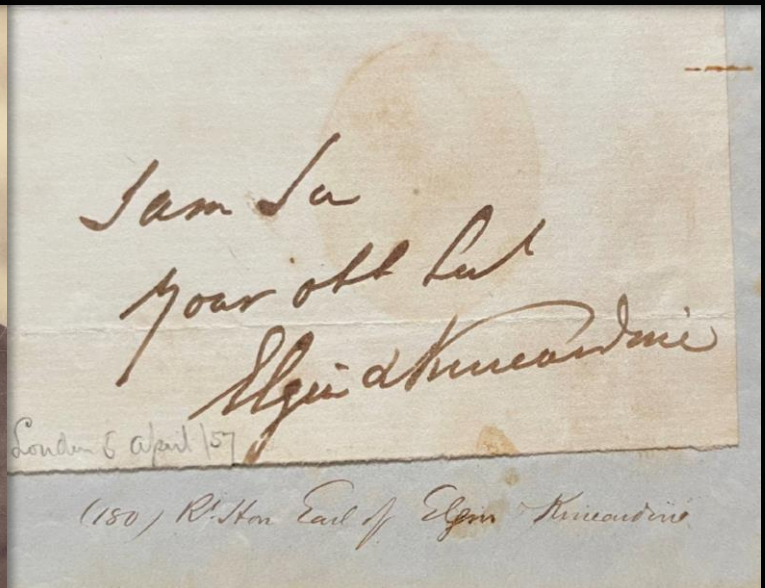 I am Sir
Your obt Svt
Elgin & Kincardine
London 6 April /57
(180) Rt. Hon Earl of Elgin & Kincardine